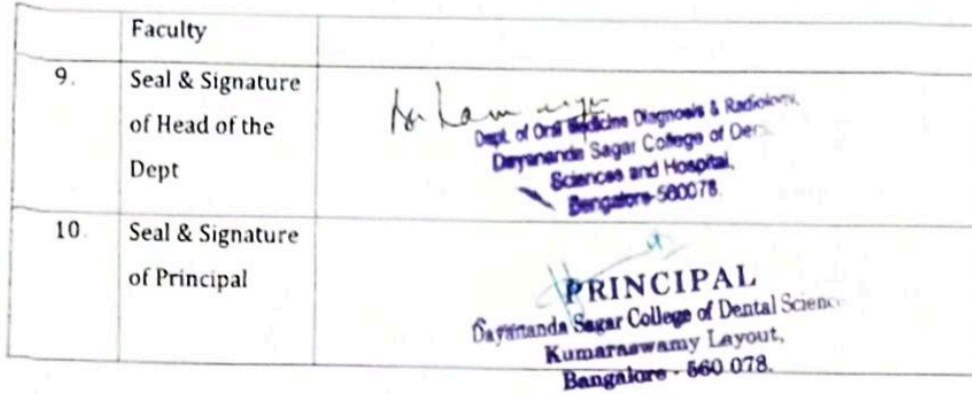 Faculty
9. Seal & Signature
of Head of the
Dept
Dept. of Oral Medicine Diagnosis & Radiology,
Dayananda Sagar College of
Sciences and Hospital,
Bangalore-560078.
10. Seal & Signature
of Principal
PRINCIPAL
Dayananda Sagar College of Dental
Kumaraswamy Layout,
Bangalore - 560 078.